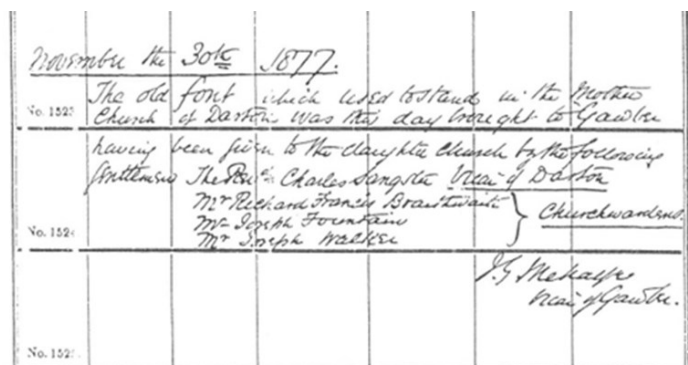 November the 30th 1877.
The old font which used to stand in the Mother
No. 1523
Church of Darton was this day brought to Gawber
having been given to the daughter church by the following
Gentlemen The Revd. Charles Sangster Vicar of Darton
Mr Richard Francis Braithwaite
Churchwardens.
Mr Joseph Fountain
No. 1524
Mr Joseph Walker
J G Metcalfe
Vicar of Gawber.
No. 1525